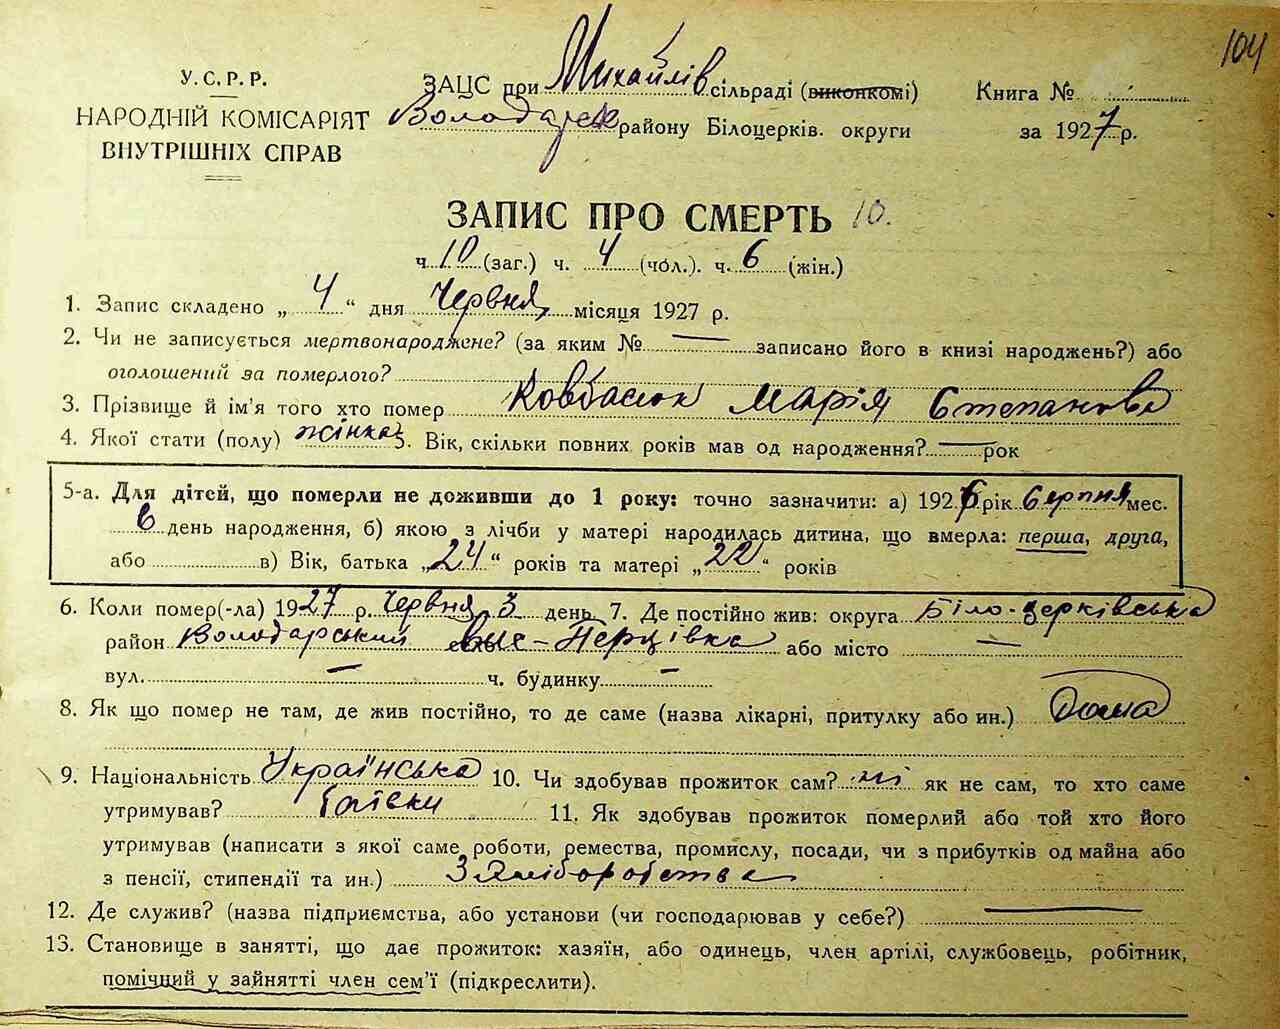 104
У.С.Р.Р.
НАРОДНІЙ КОМІСАРІЯТ
ВНУТРІШНІХ СПРАВ
ЗАЦС при Михайлів сільраді (виконкомі)
Володарськ району Білоцерків. округи
Книга №
за 1927 р.
ЗАПИС ПРО СМЕРТЬ 10.
ч 10 (заг.) ч. 4 (чол.). ч. 6 (жін.)
1. Запис складено „ 4 “ дня Червня місяця 1927 р.
2. Чи не записується мертвонароджене? (за яким № — записано його в книзі народжень?) або
оголошений за померлого?
3. Прізвище й ім'я того хто помер Ковбасюк Марія Степанова
4. Якої стати (полу) жінка 5. Вік, скільки повних років мав од народження? — рок
5-а. Для дітей, що померли не доживши до 1 року: точно зазначити: а) 1926 рік Серпня мес.
6 день народження, б) якою з лічби у матері народилась дитина, що вмерла: перша, друга,
або в) Вік, батька „24“ років та матері „22“ років
6. Коли помер(-ла) 1927 р. Червня 3 день 7. Де постійно жив: округа Біло-церківська
район Володарський або місто —
вул. — ч. будинку —
8. Як що помер не там, де жив постійно, то де саме (назва лікарні, притулку або ин.) Дома
9. Національність Українська 10. Чи здобував прожиток сам? ні як не сам, то хто саме
утримував? Батьки 11. Як здобував прожиток померлий або той хто його
утримував (написати з якої саме роботи, ремества, промислу, посади, чи з прибутків од майна або
з пенсії, стипендії та ин.) З хліборобства
12. Де служив? (назва підприємства, або установи (чи господарював у себе?) —
13. Становище в занятті, що дає прожиток: хазяїн, або одинець, член артілі, службовець, робітник,
помічний у зайнятті член сем'ї (підкреслити).